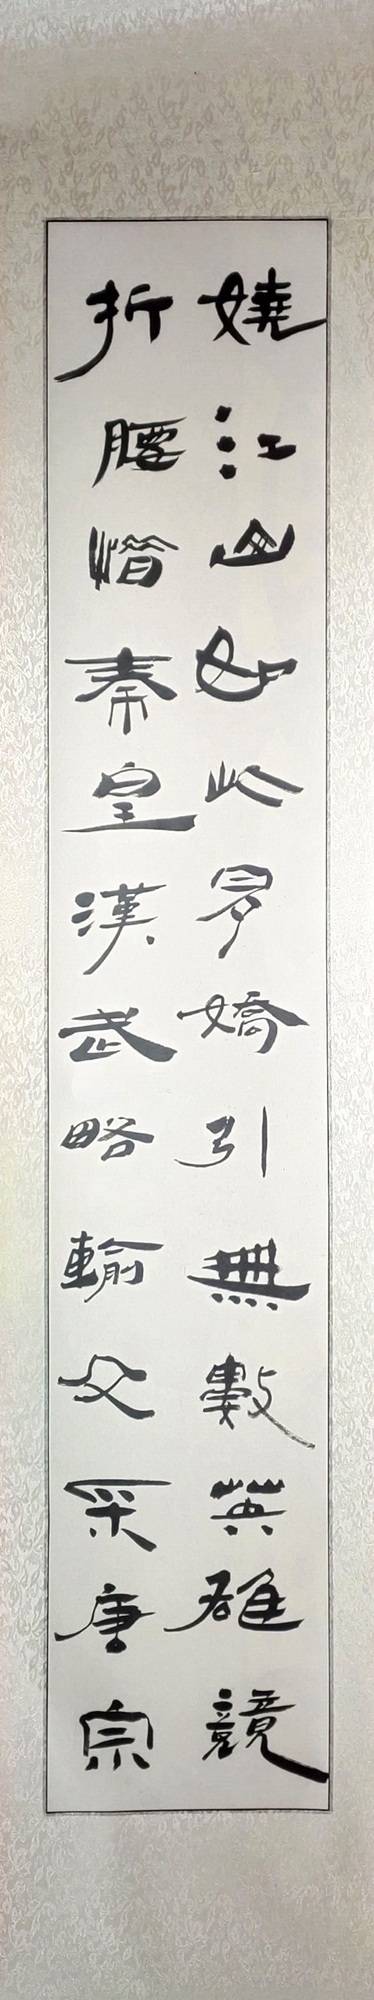 嬈江山如此多嬌引無數英雄競
折腰惜秦皇漢武略輸文采唐宗